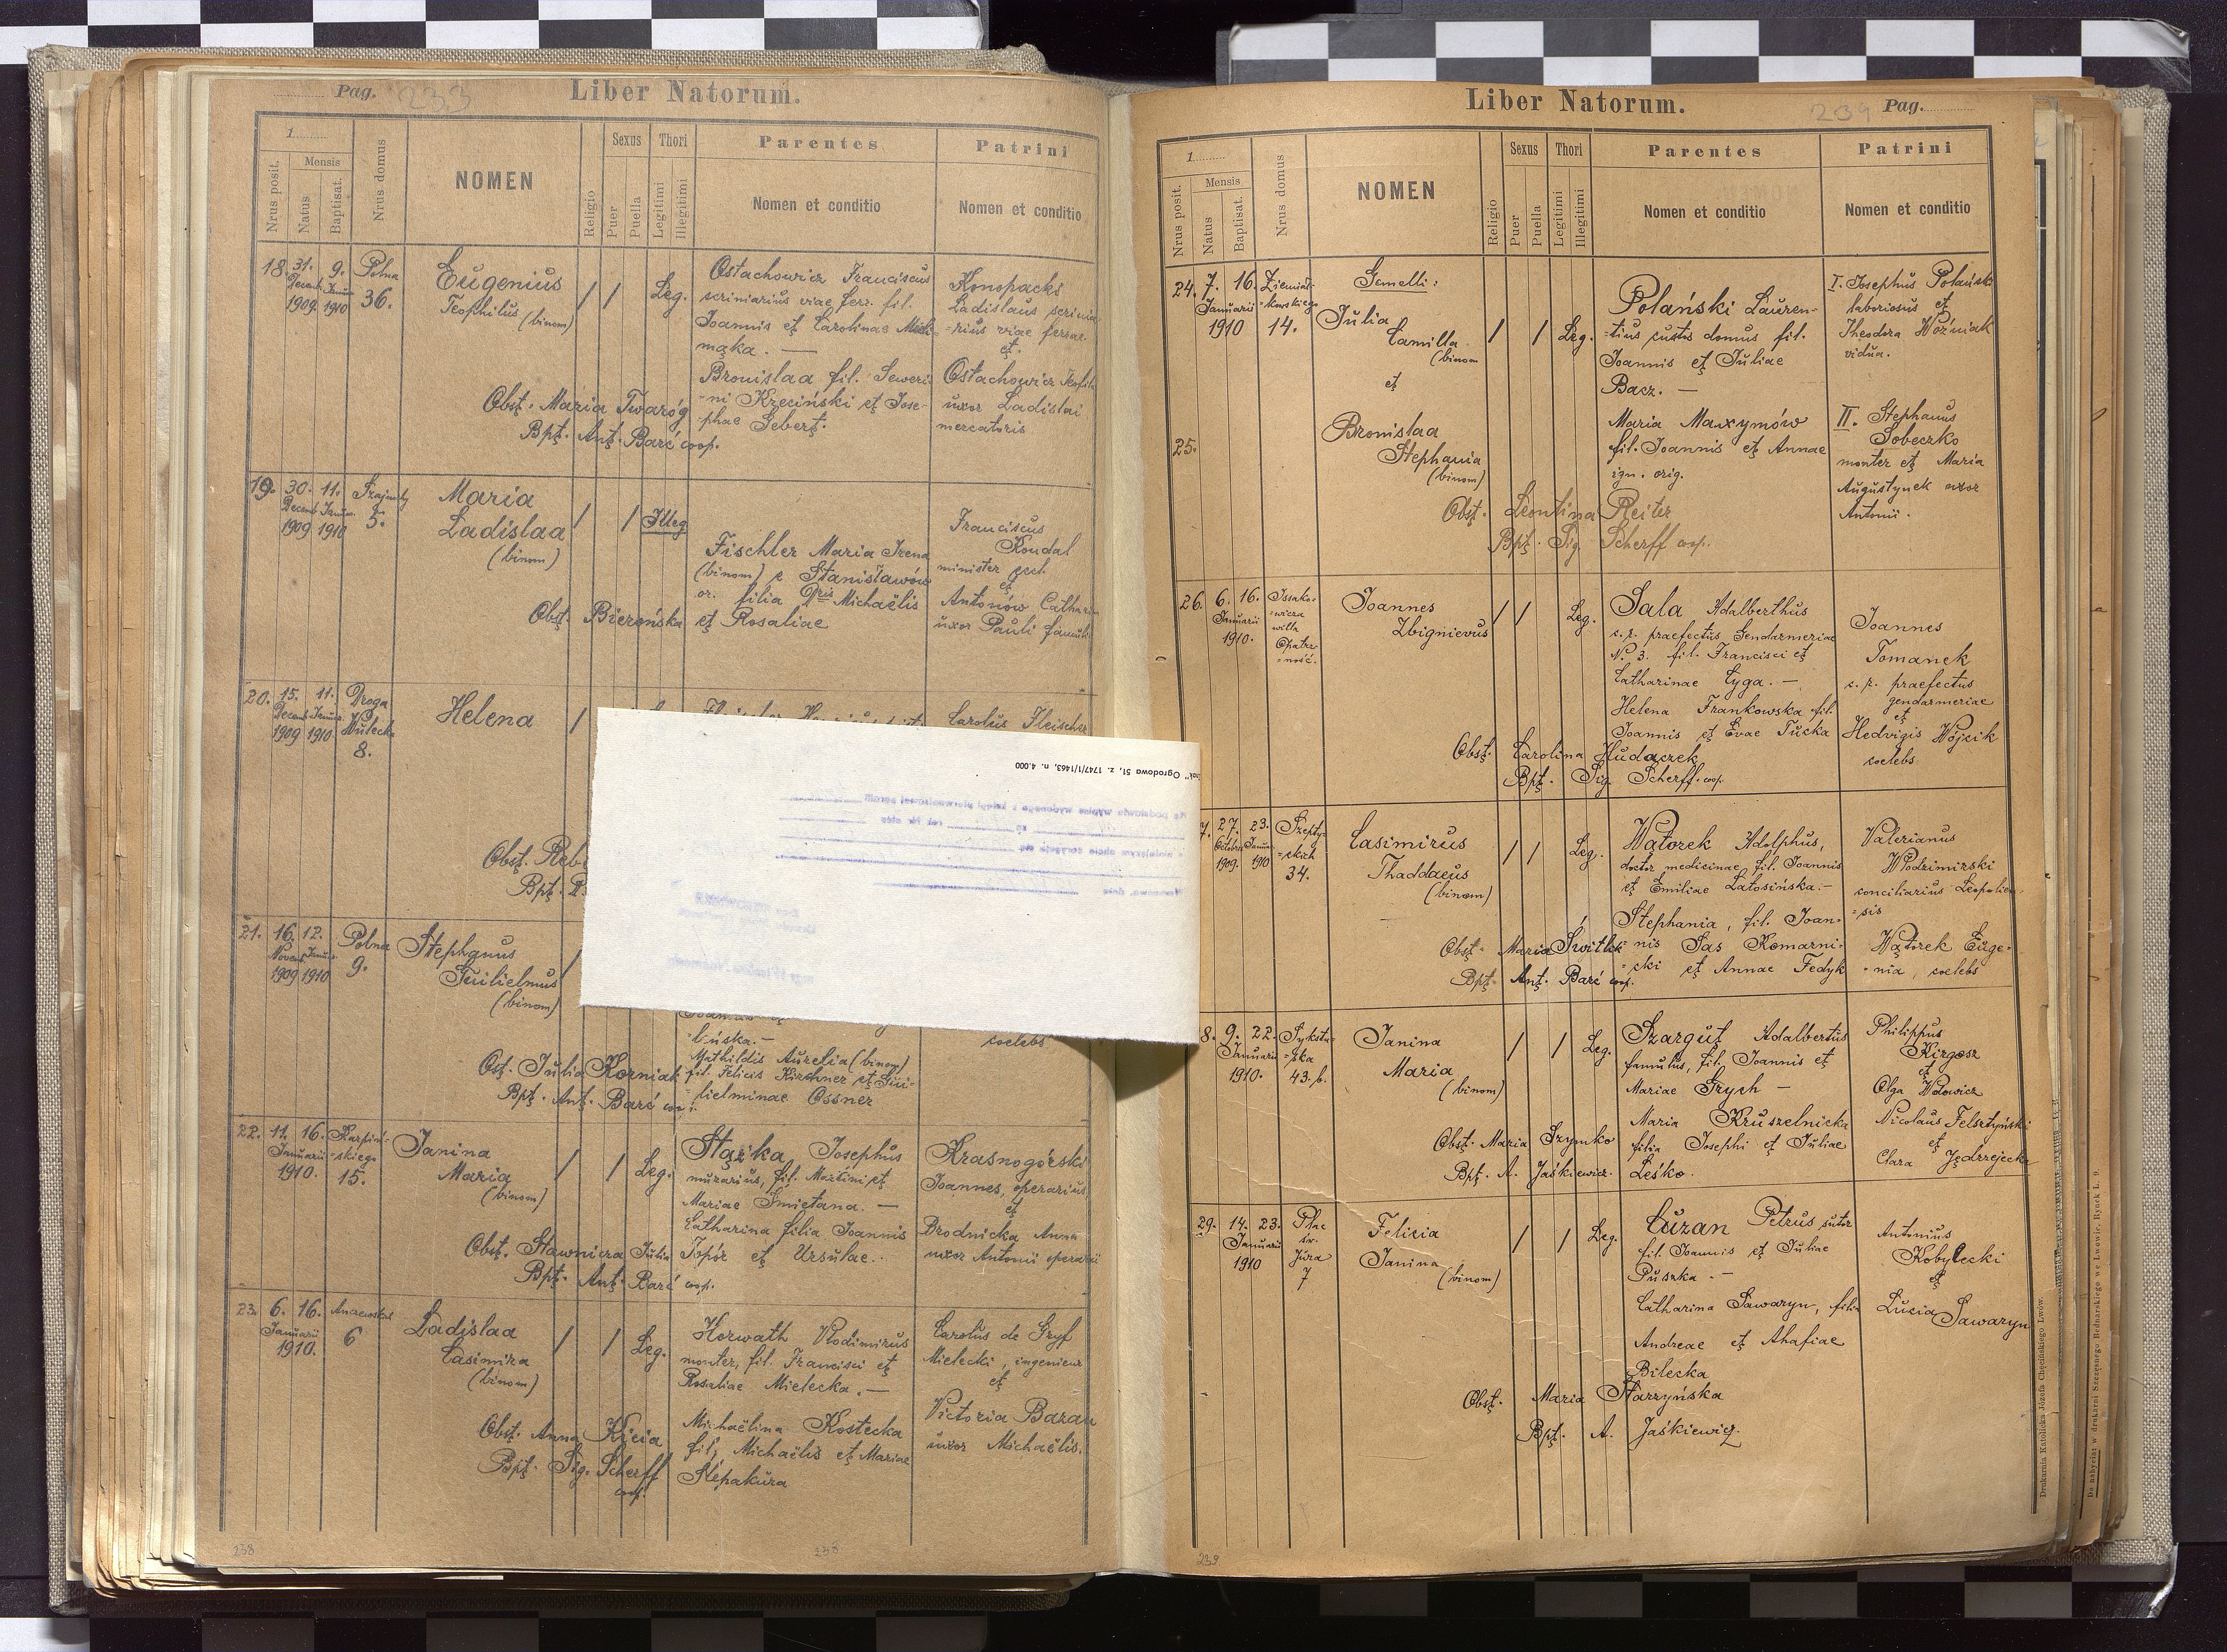 Pag. 233
Liber Natorum.
1
Nrus posit.
Mensis
Natus
Baptisat.
Nrus domus
NOMEN
Religio
Sexus
Puer
Puella
Thori
Legitimi
Illegitimi
Parentes
Nomen et conditio
Patrini
Nomen et conditio
18. 31. 9. Polna
Decemb. Januar.
1909. 1910 36.
Eugenius
Teophilus
(binom)
/ / Leg.
Ostachowicz Franciscus
scriniarius viae ferr. fil.
Joannis et Carolinae
mąka. —
Bronislaa fil. Seweri-
-ni Krzeciński et Jose-
phae Sebert.
Konopacki
Ladislaus scrinia-
-rius viae ferrae
et
Ostachowicz Teofila
uxor Ladislai
mercatoris
Obst. Maria Twaróg
Bpt. Ant. Barć coop.
19. 30. 11.
Decemb. Januar.
1909 1910 5.
Maria
Ladislaa
(binom)
/ / Illeg
Fischler Maria Irena
(binom) e Stanisławów
or. filia Michaëlis
et Rosaliae
Franciscus
Koudal
minister eccl.
et
Antonów Cathari
uxor Pauli famuli
Obst. Bierońska
20. 15. 11. Droga
Decemb. Januar. Wulecka
1909 1910 8.
Helena
/
Carolus Fleischer
Obst.
Bpt.
21. 16. 12. Polna
Novemb. Januar. 9.
1909 1910
Stephanus
Guilielmus
(binom)
/
-buska. —
Mathildis Aurelia (binom)
fil. Felicis Kirchner et Gui-
-lielminae Ossner
coelebs
Obst. Julia Korniak
Bpt. Ant. Barć coop.
22. 11. 16. Karpiń-
Januarii -skiego
1910. 15.
Janina
Maria
(binom)
/ / Leg.
Stączka Josephus
murarius, fil. Martini et
Mariae Śmietana. —
Catharina filia Joannis
Topór et Ursulae.
Krasnogórski
Joannes, operarius
et
Brodnicka Anna
uxor Antonii operarii
Obst. Sławnicza Julia
Bpt. Ant. Barć coop.
23. 6. 16.
Januarii 6
1910.
Ladislaa
Casimira
(binom)
/ / Leg.
Horwath Vlodimirus
monter, fil. Francisci et
Rosaliae Mielecka. —
Michaëlina Kostecka
fil. Michaëlis et Mariae
Slepakura
Carolus de Gryf
Mielecki, ingenieur
et
Victoria Baran
uxor Michaëlis.
Obst. Anna Kicia
Bpt. Sig. Scherff
coop.
238
238
Ogrodowa 51, z. 1747/1/1463, n. 4.000
Liber Natorum.
239 Pag.
1
Nrus posit.
Mensis
Natus
Baptisat.
Nrus domus
NOMEN
Religio
Sexus
Puer
Puella
Thori
Legitimi
Illegitimi
Parentes
Nomen et conditio
Patrini
Nomen et conditio
24. 7. 16. Ziemiał-
Januarii -kowskiego
1910 14.
Gemelli:
Julia
Camilla
(binom
et
/ / Leg.
Polański Lauren-
-tius custos domus fil.
Joannis et Juliae
Bacz. —
I. Josephus Polański
laboriosus et
Theodora Woźniak
vidua.
25.
Bronislaa
Stephania
(binom)
Maria Maxymów
fil. Joannis et Annae
ign. orig.
II. Stephanus
Sobeczko
monter et Maria
Augustynek uxor
Antonii.
Obst. Leontina Reiter
Bpt. Sig. Scherff coop.
26. 6. 16. Issako-
Januarii -wicza
1910. willa
Opatrz-
-ność.
Joannes
Zbignievus
/ / Leg.
Sala Adalberthus
c. r. praefectus Gendarmeriae
N. 3. fil. Francisci et
Catharinae Cyga. —
Helena Frankowska fil.
Joannis et Evae Tucka
Joannes
Tomanek
c. r. praefectus
gendarmeriae
et
Hedvigis Wójcik
coelebs
Obst. Carolina Hudaczek
Bpt. Sig. Scherff. coop.
7. 27. 23. Szepty-
Octobr. Januar. -ckich
1909. 1910 34.
Casimirus
Thaddaeus
(binom)
/ / Leg.
Wątorek Adolphus,
doctor medicinae, fil. Joannis
et Emiliae Latosińska. —
Stephania, fil. Joan-
-nis Sas Komarni-
-cki et Annae Fedyk
Valerianus
Włodzimirski
conciliarius Leopolien-
-sis
Wątorek Euge-
-nia, coelebs
Obst. Maria Świtlik
Bpt. Ant. Barć coop.
8. 9. 22. Sykstu-
Januarii -ska
1910. 43. b.
Janina
Maria
(binom)
/ / Leg.
Szargut Adalbertus
famulus, fil. Joannis et
Mariae Grych —
Maria Kruszelnicka
filia Josephi et Juliae
Leśko.
Philippus
Kirgosz
et
Olga Wołowicz
Nicolaus Felsztyński
et
Clara Jędrzejecka
Obst. Maria Szymko
Bpt. A. Jaśkiewicz.
29. 14. 23. Plac
Januarii św.
1910 Jura
7
Felicia
Janina
(binom)
/ / Leg.
Cuzan Petrus sutor
fil. Joannis et Juliae
Puszka. —
Catharina Sawaryn, filia
Andreae et Ahafiae
Bilecka
Antonius
Kobyłecki
et
Lucia Sawaryn
Obst. Maria Starzyńska
Bpt. A. Jaśkiewicz.
239
Drukarnia Katolicka Józefa Chęcińskiego Lwów.
Do nabycia w drukarni Szczęsnego Bednarskiego we Lwowie, Rynek L. 9.